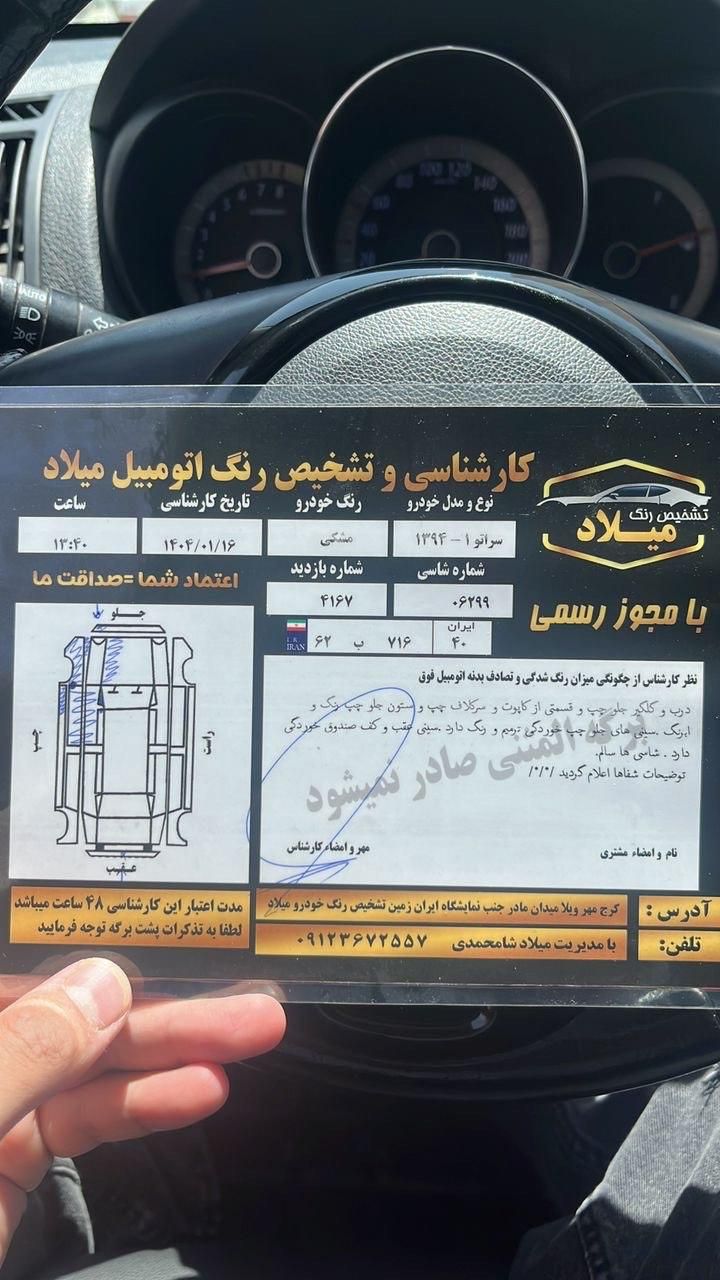 AUTO
کارشناسی و تشخیص رنگ اتومبیل میلاد
تشخیص رنگ
میلاد
با مجوز رسمی
نوع و مدل خودرو
رنگ خودرو
تاریخ کارشناسی
ساعت
سراتو ۱ - ۱۳۹۴
مشکی
۱۴۰۴/۰۱/۱۶
۱۳:۴۰
شماره شاسی
شماره بازدید
۰۶۲۹۹
۴۱۶۷
اعتماد شما =صداقت ما
ایران
۴۰
۷۱۶
ب
۶۲
I R
IRAN
جلو
چپ
راست
عقب
نظر کارشناس از چگونگی میزان رنگ شدگی و تصادف بدنه اتومبیل فوق
درب و گلگیر جلو چپ و قسمتی از کاپوت و سرکلاف چپ و ستون جلو چپ رنگ و
ابرنگ .سینی های جلو چپ خوردگی ترمیم و رنگ دارد .سینی عقب و کف صندوق خوردگی
دارد . شاسی ها سالم.
توضیحات شفاها اعلام گردید /*/*/
برگه المثنی صادر نمیشود
نام و امضاء مشتری
مهر و امضاء کارشناس
مدت اعتبار این کارشناسی ۴۸ ساعت میباشد
لطفا به تذکرات پشت برگه توجه فرمایید
آدرس :
کرج مهر ویلا میدان مادر جنب نمایشگاه ایران زمین تشخیص رنگ خودرو میلاد
تلفن:
با مدیریت میلاد شامحمدی ۰۹۱۲۳۶۷۲۵۵۷